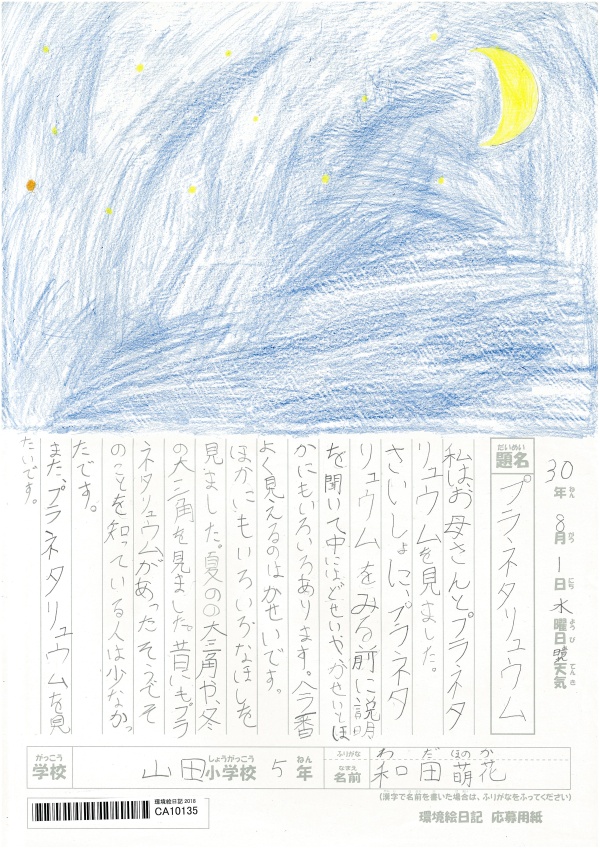 30年ねん 8月がつ 1日にち 水曜日ようび 天気てんき
だいめい
題名 プラネタリュウム
私はお母さんとプラネタ
リュウムを見ました。
さいしょに、プラネタ
リュウムをみる前に説明
を聞いて中にはどせいやかせいとほ
かにもいろいろあります。今一番
よく見えるのはかせいです。
ほかにもいろいろなほしを
見ました。夏のの大三角や、冬
の大三角を見ました。昔にもプラ
ネタリュウムがあったそうでそ
のことを知っている人は少なかっ
たです。
また、プラネタリュウムを見
たいです。
がっこう しょうがっこう ねん
学校 山田小学校 5年
ふりがな わだ ほのか
なまえ
名前 和田 萌花
(漢字で名前を書いた場合は、ふりがなをふってください)
環境絵日記 2018
CA10135
環境絵日記 応募用紙